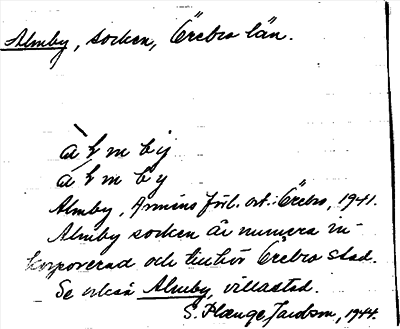 Almby, socken, Örebro län.
àḷmbÿ
áḷmby
Almby, Armens förl. ort: Örebro, 1941.
Almby socken är numera in-
korporerad och tillhör Örebro stad.
Se också Almby villastad.
S. Plænge Jacobson, 1944.